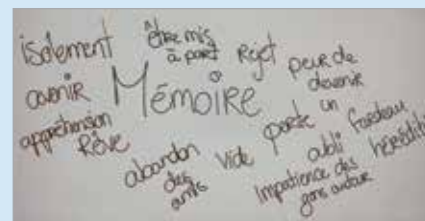 isolement
être mis
à part
Rejet
peur de
devenir
un
fardeau
avenir
Mémoire
appréhension
Rêve
abandon
des
amis
vide
perte
oubli
hérédité
Impatience des
gens autour